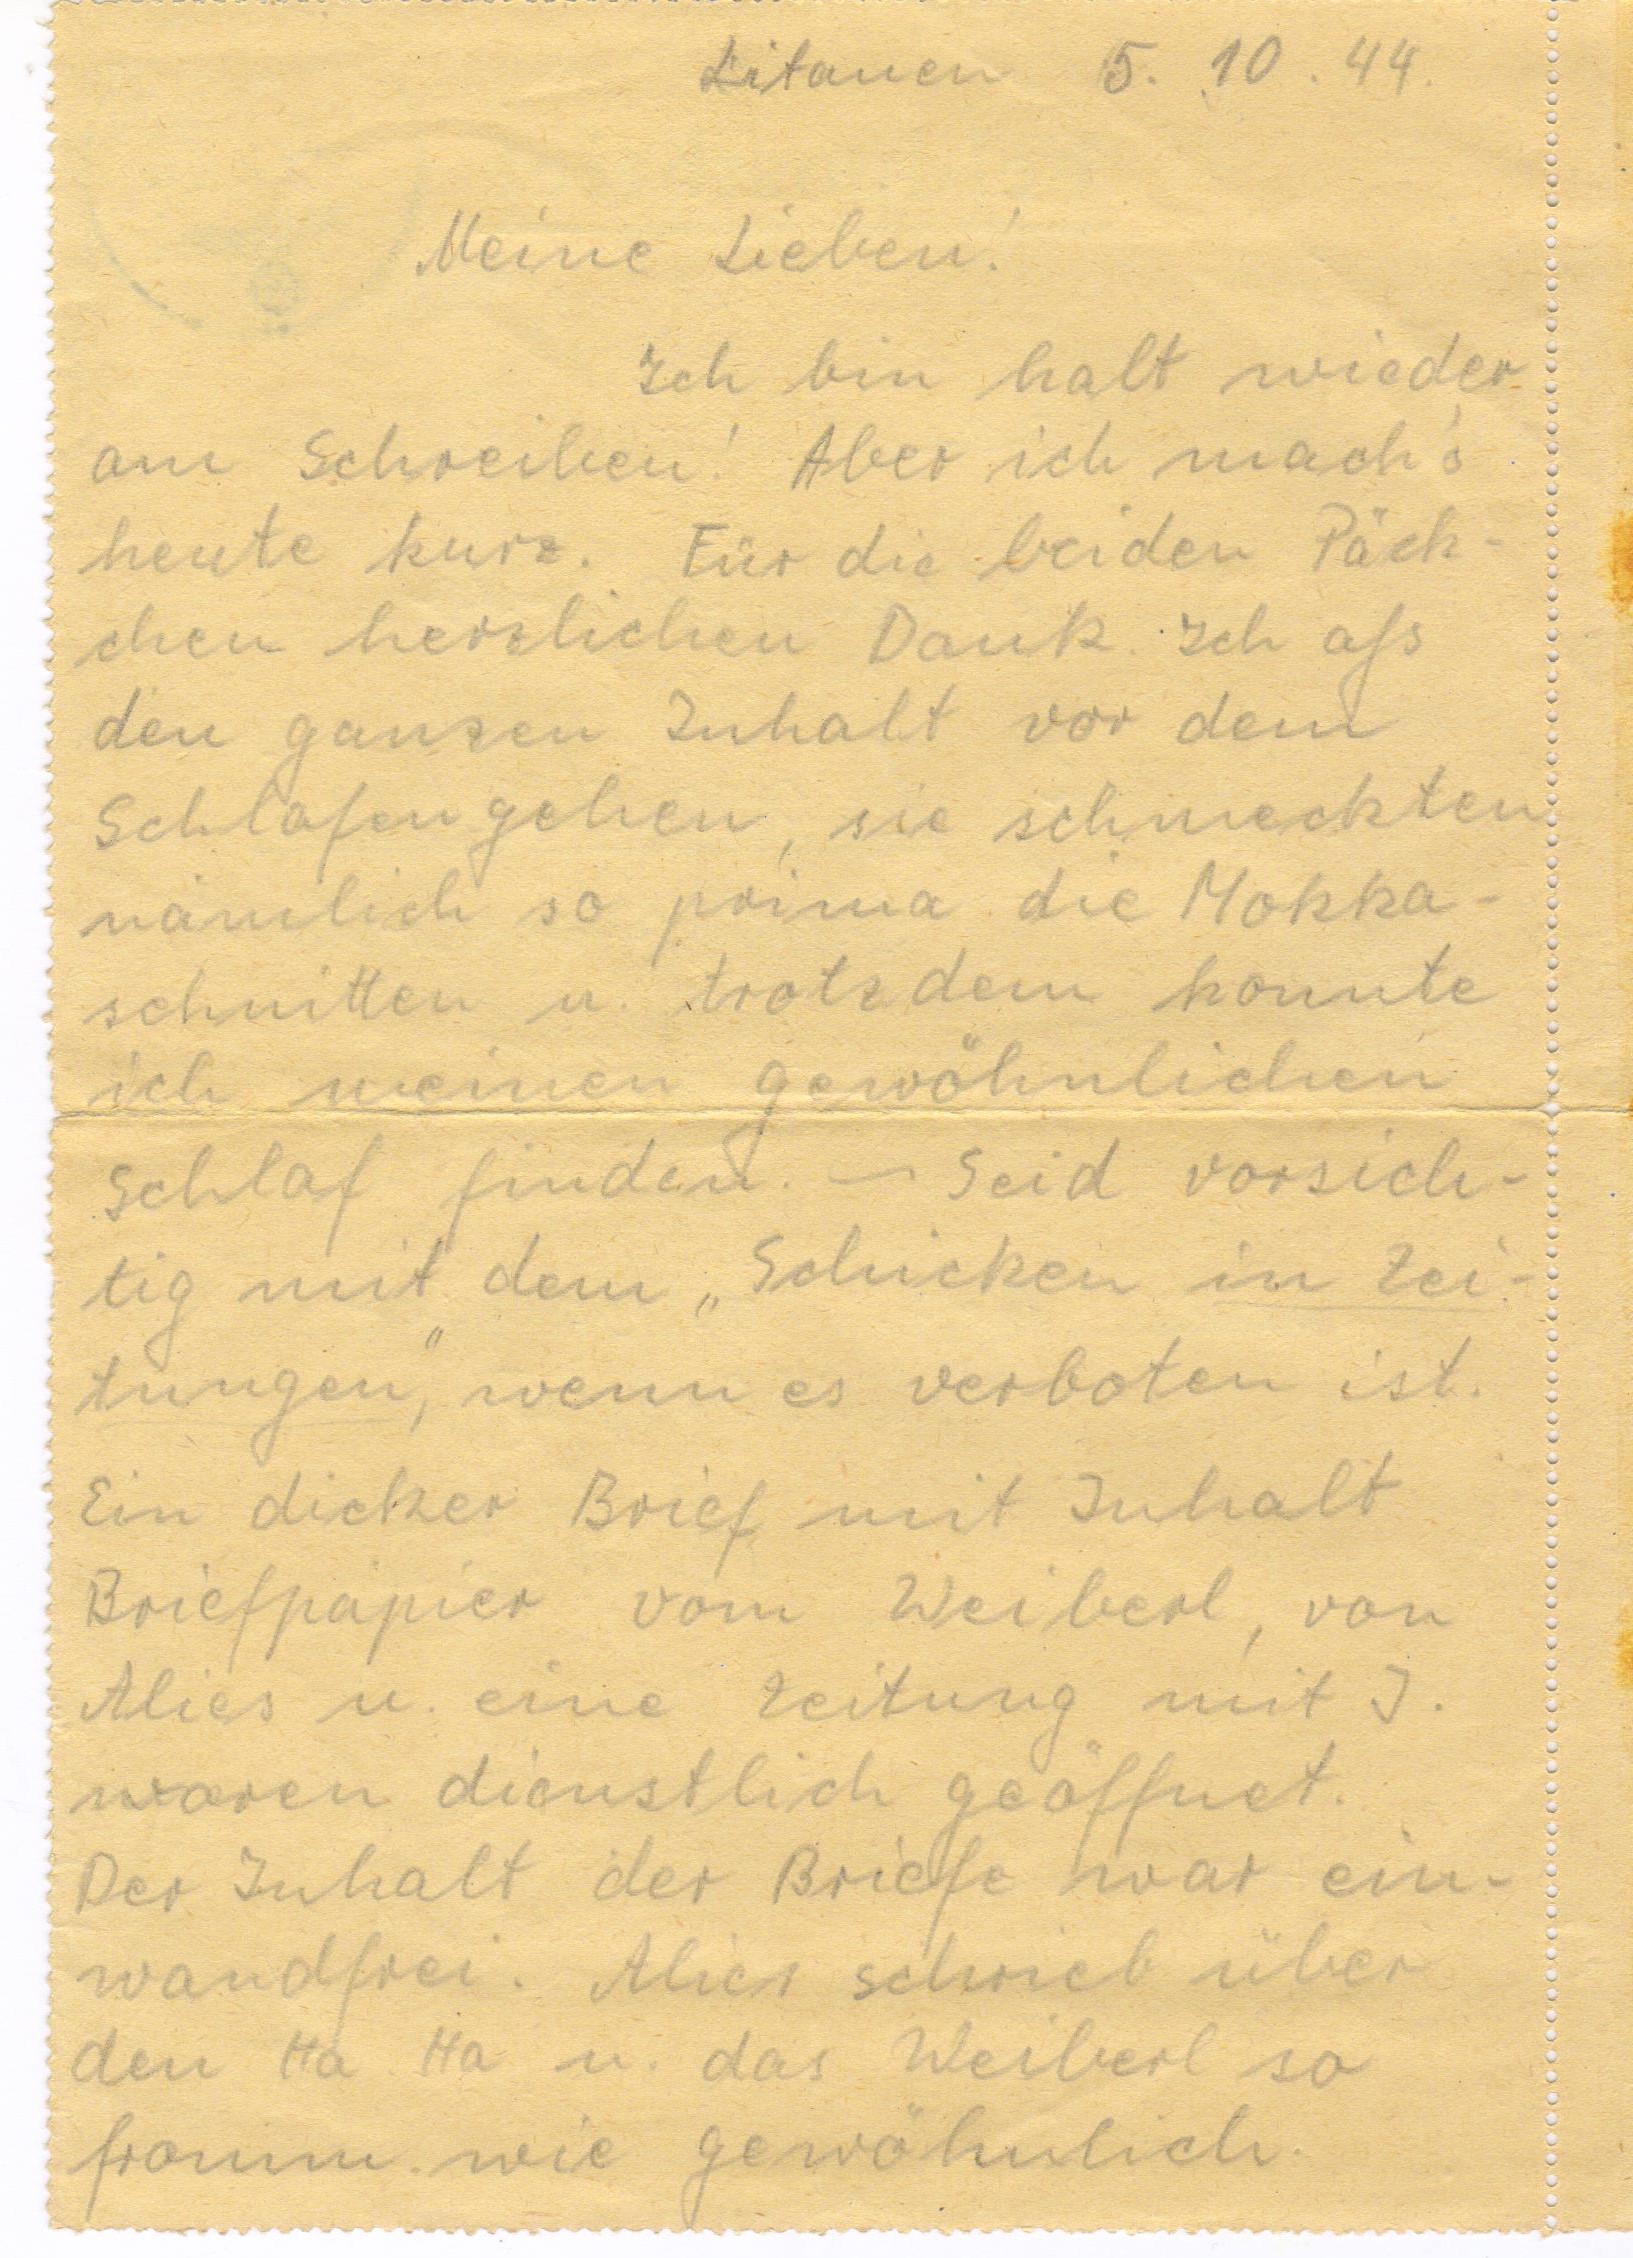 Litauen 5. 10. 44.
Meine Lieben!
Ich bin halt wieder
am Schreiben! Aber ich mach's
heute kurz. Für die beiden Päck-
chen herzlichen Dank. Ich aß
den ganzen Inhalt vor dem
Schlafengehen, sie schmeckten
nämlich so prima die Mokka-
schnitten u. trotzdem konnte
ich meinen gewöhnlichen
Schlaf finden. – Seid vorsich-
tig mit dem „Schicken in Zei-
tungen", wenn es verboten ist.
Ein dicker Brief mit Inhalt
Briefpapier vom Weiberl, von
Alies u. eine Zeitung mit I.
waren dienstlich geöffnet.
Der Inhalt der Briefe war ein-
wandfrei. Alies schrieb über
den Ha Ha u. das Weiberl so
fromm wie gewöhnlich.